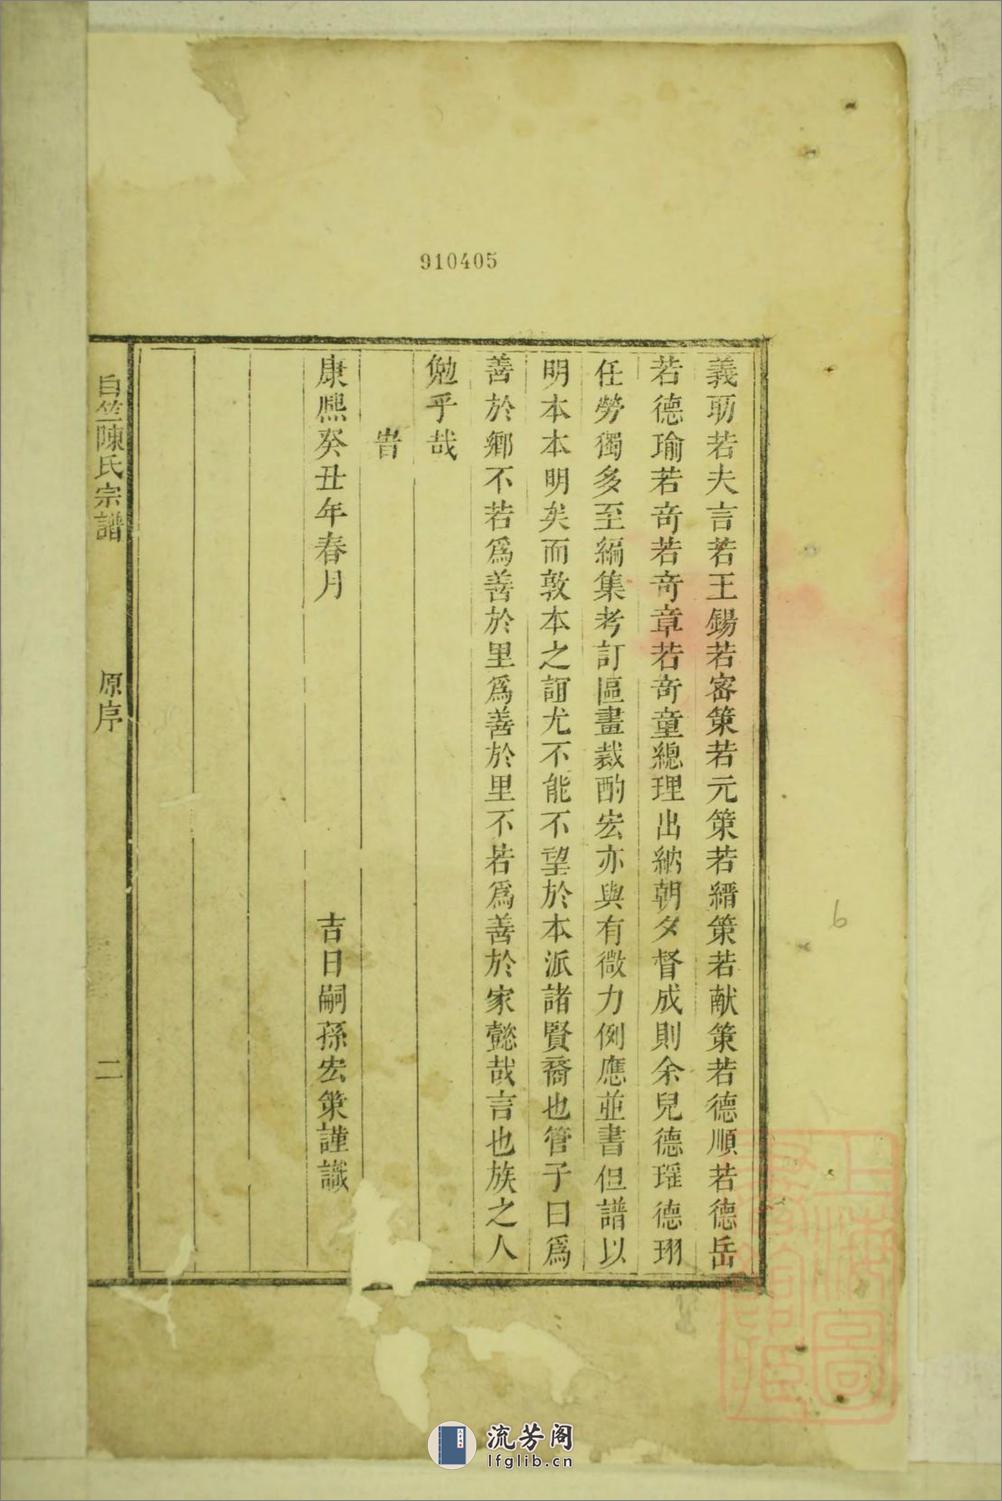 910405
義耴若夫言若王錫若密策若元策若縉策若献策若德順若德岳
若德瑜若奇若奇章若奇童總理出納朝夕督成則余兒德瑤德珝
任勞獨多至編集考訂區畫裁酌宏亦與有微力例應並書但譜以
明本本明矣而敦本之誼尤不能不望於本派諸賢裔也管子曰爲
善於鄉不若爲善於里爲善於里不若爲善於家懿哉言也族之人
勉乎哉
旹
康熙癸丑年春月 吉日嗣孫宏策謹識
白竺陳氏宗譜 原序 二
6
上海圖書館藏
流芳阁
lfglib.cn